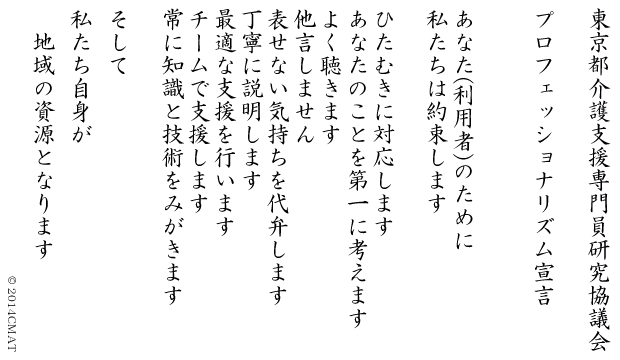 東京都介護支援専門員研究協議会
プロフェッショナリズム宣言
あなた(利用者)のために
私たちは約束します
ひたむきに対応します
あなたのことを第一に考えます
よく聴きます
他言しません
表せない気持ちを代弁します
丁寧に説明します
最適な支援を行います
チームで支援します
常に知識と技術をみがきます
そして
私たち自身が
地域の資源となります
© 2014CMAT